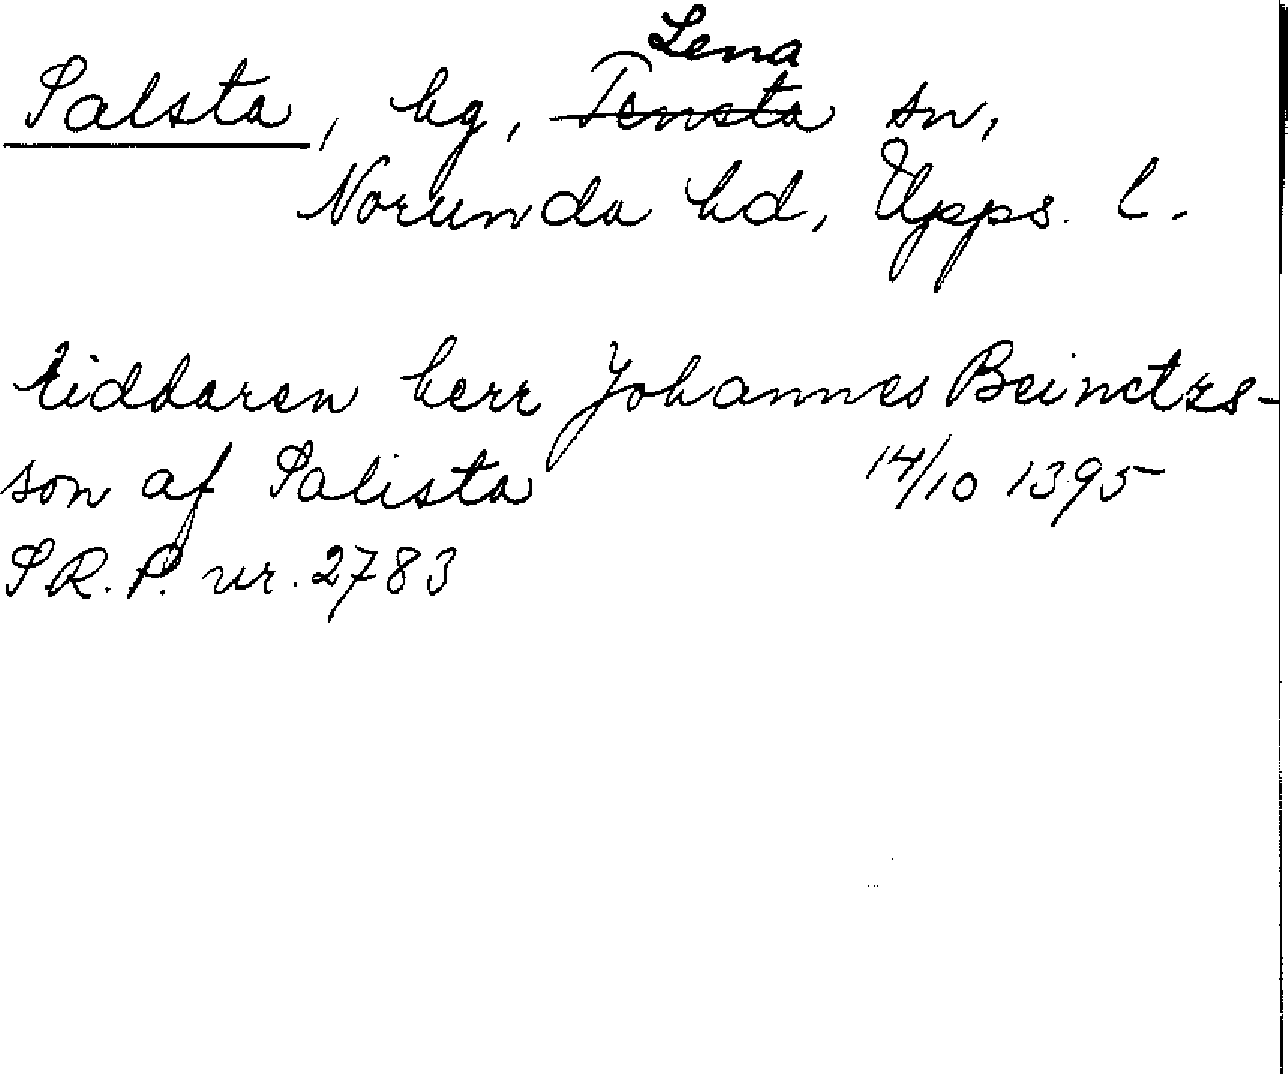 Lena
Salsta, hg, Tensta sn,
Norunda hd, Upps. l.
riddaren herr Johannes Beinctzs-
son af Salista 14/10 1395
SR.P. nr. 2783